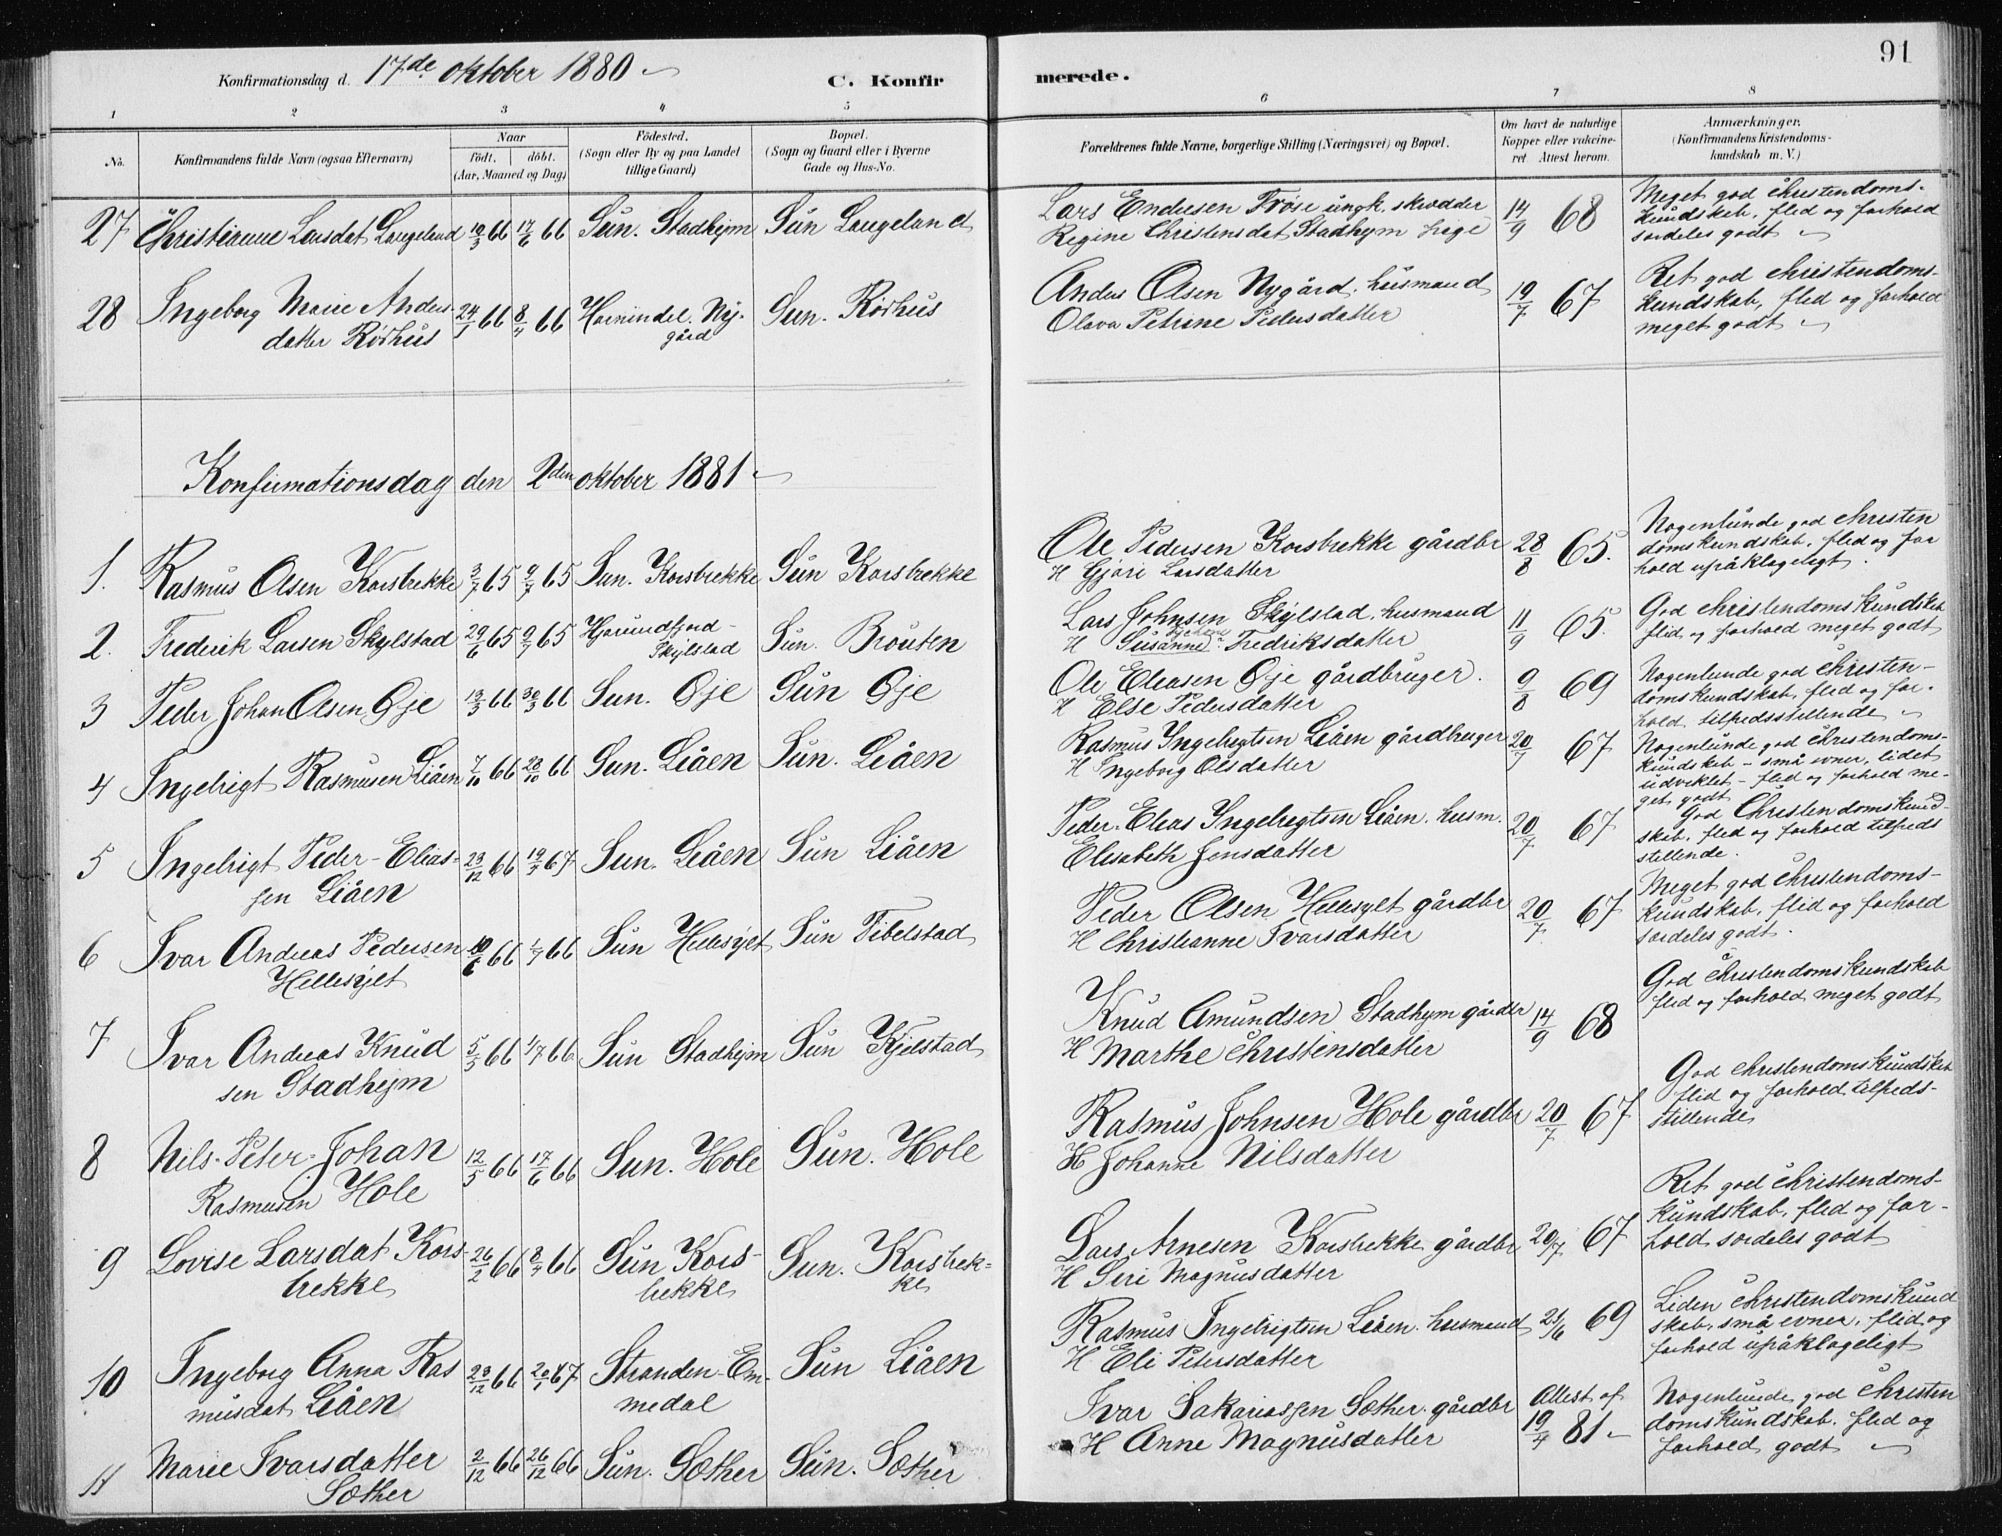 Konfirmationsdag d. 17de oktober 1880
C. Konfir merede. 91
1 2 3 4 5 6 7 8
No. Konfirmandens fulde Navn (ogsaa Efternavn) Naar født. døbt. (Aar, Maaned og Dag) Fødested. (Sogn eller By og paa Landet tillige Gaard) Bopæl. (Sogn og Gaard eller i Byerne Gade og Hus-No.
Forældrenes fulde Navne, borgerlige Stilling (Næringsvei) og Bopæl. Om havt de naturlige Kopper eller vakcineret Attest herom. Anmærkninger. (Konfirmandens Kristendomskundskab m. V.)
27 Christianne Larsdat Langeland 19/3 66 17/6 66 Sun. Stadhejm Sun Langeland
Lars Endresen Frøse ungk. skrædder 14/9 68 Meget god christendoms-
Regine Christensdat Stadhejm kundskab, flid og forhold
særdeles godt
28 Ingeborg Marie Anders- 24/1 66 8/4 66 Hornindal. Ny- Sun. Rødhus
datter Rødhus gård
Anders Olsen Nygård, husmand 19/7 67 Ret god christendoms-
Olava Petrine Pedersdatter kundskab, flid og forhold
meget godt
Konfirmationsdag den 2den oktober 1881
1. Rasmus Olsen Korsbrekke 3/7 65 9/7 65 Sun. Korsbrekke Sun Korsbrekke
Ole Pedersen Korsbrekke gårdbr 28/8 65. Nogenlunde god christen
H Gjøri Larsdatter domskundskab, flid og for
hold upåklageligt.
2. Frederik Larsen Skylstad 29/6 65 9/7 65 Hjørundfjord- Sun. Brouten
Skylstad
Lars Johnsen Skylstad, husmand 11/9 65. God christendomskundskab
H Susanne Fredriksdatter flid og forhold meget godt
3 Peder Johan Olsen Øje 13/3 66 30/3 66 Sun. Øje Sun Øje
Ole Eliasen Øje gårdbruger. 9/8 69 Nogenlunde god christen-
H Else Pedersdatter domskundskab, flid og for-
hold tilfredsstillende
4 Ingebrigt Rasmusen Liåen 7/10 66 28/10 66 Sun. Liåen Sun. Liåen
Rasmus Ingebrigtsen Liåen gårdbruger 20/7 67 Nogenlunde god christendoms-
H Ingeborg Olsdatter kundskab - små evner, lidet
udviklet - flid og forhold me-
get godt
5 Ingebrigt Peder-Elias- 23/12 66 19/3 67 Sun. Liåen Sun Liåen
sen Liåen
Peder-Elias Ingebrigtsen Liåen. husm. 20/7 67 God Christendomskund-
Elisabeth Jensdatter skab, flid og forhold tilfreds
stillende.
6 Ivar Andreas Pedersen 10/6 66 1/7 66 Sun Hellesylt Sun Tibelstad
Hellesylt
Peder Olsen Hellesylt gårdbr 20/7 67 Meget god christendoms-
H Christianne Ivarsdatter kundskab, flid og forhold
særdeles godt.
7 Ivar Andreas Knud 5/5 66 1/7 66 Sun Stadhejm Sun Kjelstad
sen Stadhejm
Knud Amundsen Stadhejm gårdbr 14/9 68 God christendomskundskab
H Marthe Christensdatter flid og forhold meget godt
8 Nils-Peter-Johan 12/5 66 17/6 66 Sun. Hole Sun. Hole
Rasmusen Hole
Rasmus Johnsen Hole gårdbr 20/7 67 God christendomskundskab
H Johanne Nilsdatter flid og forhold tilfreds-
stillende
9 Lovise Larsdat Kors- 26/2 66 8/4 66 Sun Kors- Sun. Korsbrek-
brekke brekke ke
Lars Arnesen Korsbrekke gårdbr 20/7 67 Ret god christendoms-
H Siri Magnusdatter kundskab, flid og for-
hold særdeles godt
10 Ingeborg Anna Ras 23/12 66 20/1 67 Stranden-Em- Sun Liåen
musdat Liåen medal
Rasmus Ingebrigtsen Liåen. husmand 21/6 69 Liden christendomskund
H Eli Petersdatter skab, små evner, flid og
forhold upåklageligt
11 Marie Ivarsdatter 2/12 66 26/12 66 Sun. Sæther Sun. Sæther
Sæther
Ivar Sakariassen Sæther. gårdbr Attest af Nogenlunde god christen
H Anne Magnusdatter 19/4 81 domskundskab. flid og
forhold godt